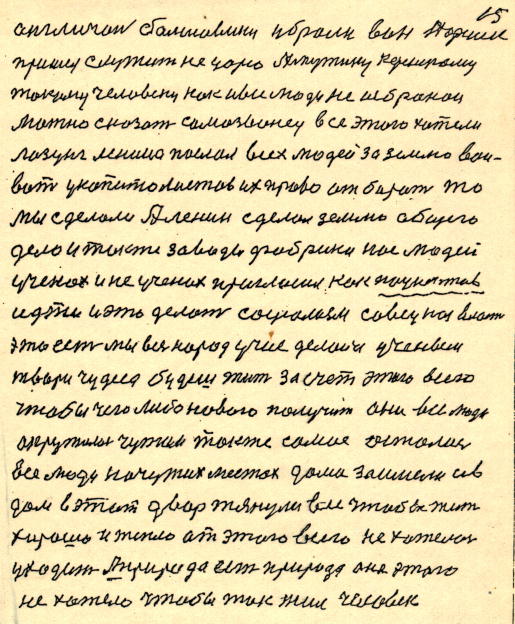 15
англичан сбаимавники убрали вон Паршее
пришел служит не царю Ампутину кернорому
токому человеку как и все люди не избраной
можно сказат самозванец все этого хотели
лозунг ленина послал всех людей за землю вои-
ват укопитолистов их право отбират то
мы сделали А ленин сделал землю общего
дело и также заводы фабрики нас людей
ученах и не ученах пригласил как
идти и это делат социализм совецная власт
это ест мы вся народ учис делай и ученьем
твари чудеса будеш жит за счет этого всего
чтобы чего либо нового получит они все люди
окружилис чужим также самое осталас
все люди на чужих местах дома заимели св
дом в этот двор тянули все чтобы жит
хорошо и тепло от этого всего не хотелос
уходит А природа ест природа она этого
не хотело чтобы так жил человек